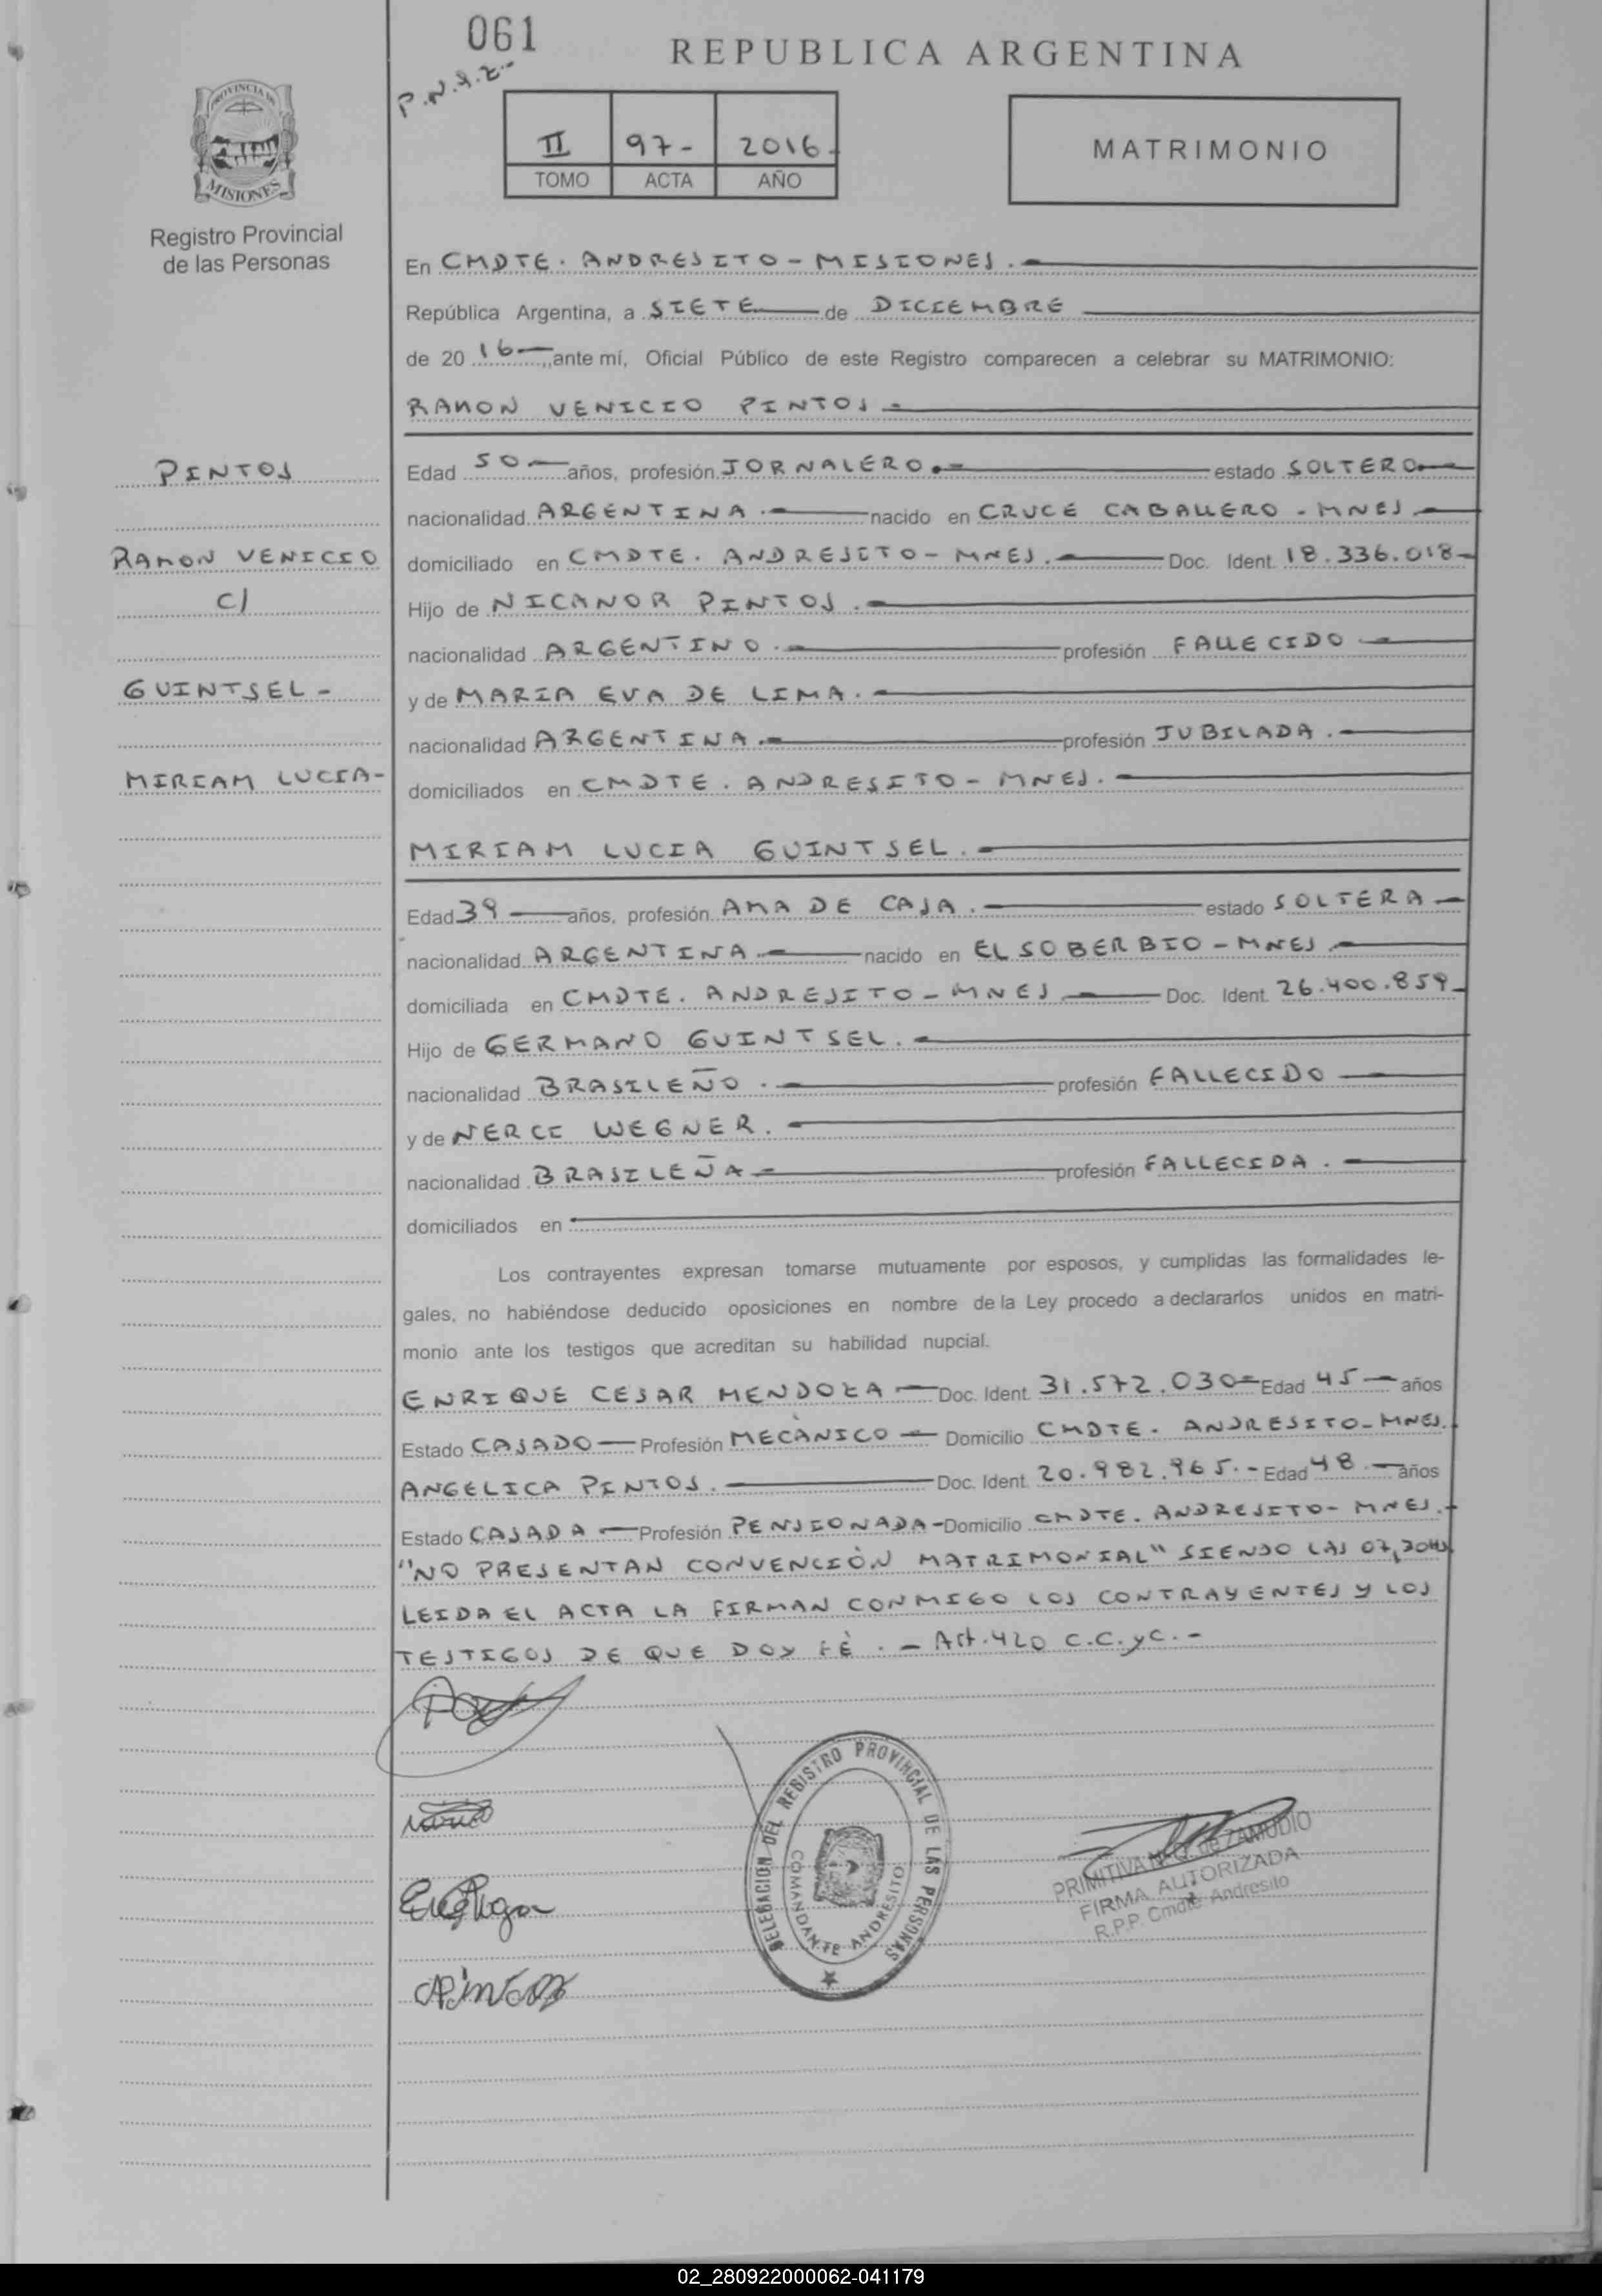 061
P.N.I.Z.-
REPUBLICA ARGENTINA
PROVINCIA DE
MISIONES
Registro Provincial
de las Personas
II 97- 2016-
TOMO ACTA AÑO
MATRIMONIO
En CMDTE. ANDRESITO - MISIONES.-
República Argentina, a SIETE de DICIEMBRE
de 20 16 ,ante mí, Oficial Público de este Registro comparecen a celebrar su MATRIMONIO:
RAMON VENICIO PINTOS -
PINTOS
RAMON VENICIO
C/
GUINTSEL -
MIRIAM LUCIA-
Edad 50 años, profesión JORNALERO.- estado SOLTERO
nacionalidad ARGENTINA.- nacido en CRUCE CABALLERO - MNES.-
domiciliado en CMDTE. ANDRESITO - MNES.- Doc. Ident. 18.336.018-
Hijo de NICANOR PINTOS.-
nacionalidad ARGENTINO.- profesión FALLECIDO.-
y de MARIA EVA DE LIMA.-
nacionalidad ARGENTINA.- profesión JUBILADA.-
domiciliados en CMDTE. ANDRESITO - MNES.-
MIRIAM LUCIA GUINTSEL.-
Edad 39 años, profesión AMA DE CASA.- estado SOLTERA-
nacionalidad ARGENTINA.- nacido en EL SOBERBIO - MNES.-
domiciliada en CMDTE. ANDRESITO - MNES.- Doc. Ident. 26.400.859-
Hijo de GERMANO GUINTSEL.-
nacionalidad BRASILEÑO.- profesión FALLECIDO
y de NERCI WEGNER.-
nacionalidad BRASILEÑA- profesión FALLECIDA.-
domiciliados en
Los contrayentes expresan tomarse mutuamente por esposos, y cumplidas las formalidades le-
gales, no habiéndose deducido oposiciones en nombre de la Ley procedo a declararlos unidos en matri-
monio ante los testigos que acreditan su habilidad nupcial.
ENRIQUE CESAR MENDOZA - Doc. Ident. 31.572.030- Edad 45 años
Estado CASADO - Profesión MECÁNICO - Domicilio CMDTE. ANDRESITO-MNES.
ANGELICA PINTOS.- Doc. Ident. 20.982.965.- Edad 48.- años
Estado CASADA - Profesión PENSIONADA - Domicilio CMDTE. ANDRESITO - MNES.-
"NO PRESENTAN CONVENCIÓN MATRIMONIAL" SIENDO LAS 07,30HS
LEIDA EL ACTA LA FIRMAN CONMIGO LOS CONTRAYENTES Y LOS
TESTIGOS DE QUE DOY FÉ.- Art.420 C.C.yC.-
DELEGACION DEL REGISTRO PROVINCIAL DE LAS PERSONAS
COMANDANTE ANDRESITO
PRIMITIVA de ZAMUDIO
FIRMA AUTORIZADA
R.P.P. Cmdte. Andresito
02_280922000062-041179